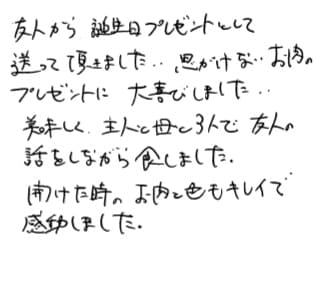 友人から 誕生日プレゼントとして
送って頂きました‥ 思がけない‥ お肉の
プレゼントに 大喜びしました‥
美味しく 主人と母と3人で 友人の
話をしながら食しました.
開けた時の お肉と色もキレイで
感動しました.